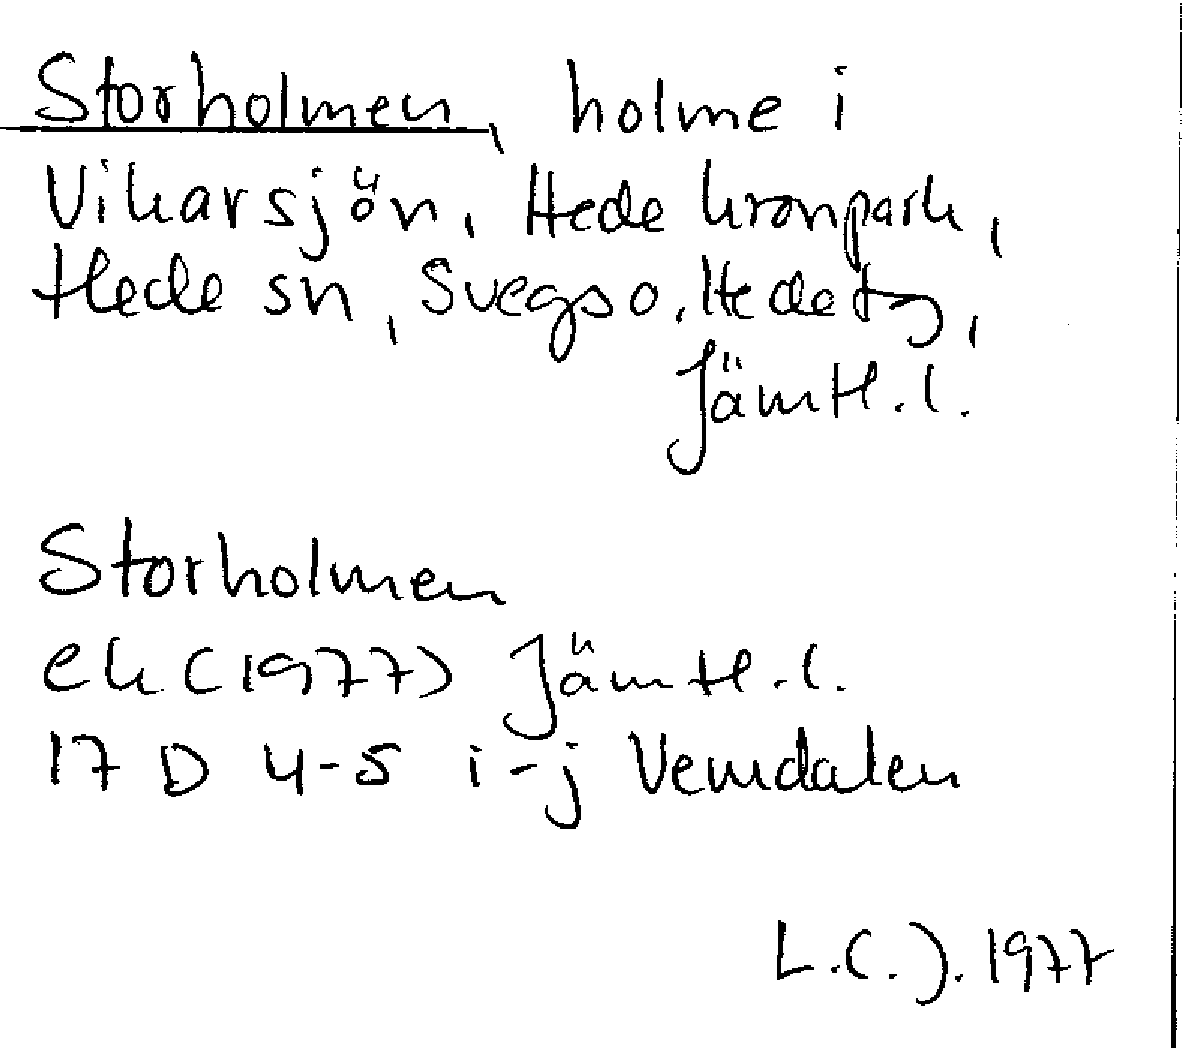 Storholmen, holme i
Vikarsjön, Hede kronpark,
Hede sn, Svegs o. Hede tg,
Jämtl. l.
Storholmen
ek (1977) Jämtl. l.
17 D 4-5 i-j Vemdalen
L.C.J. 1977